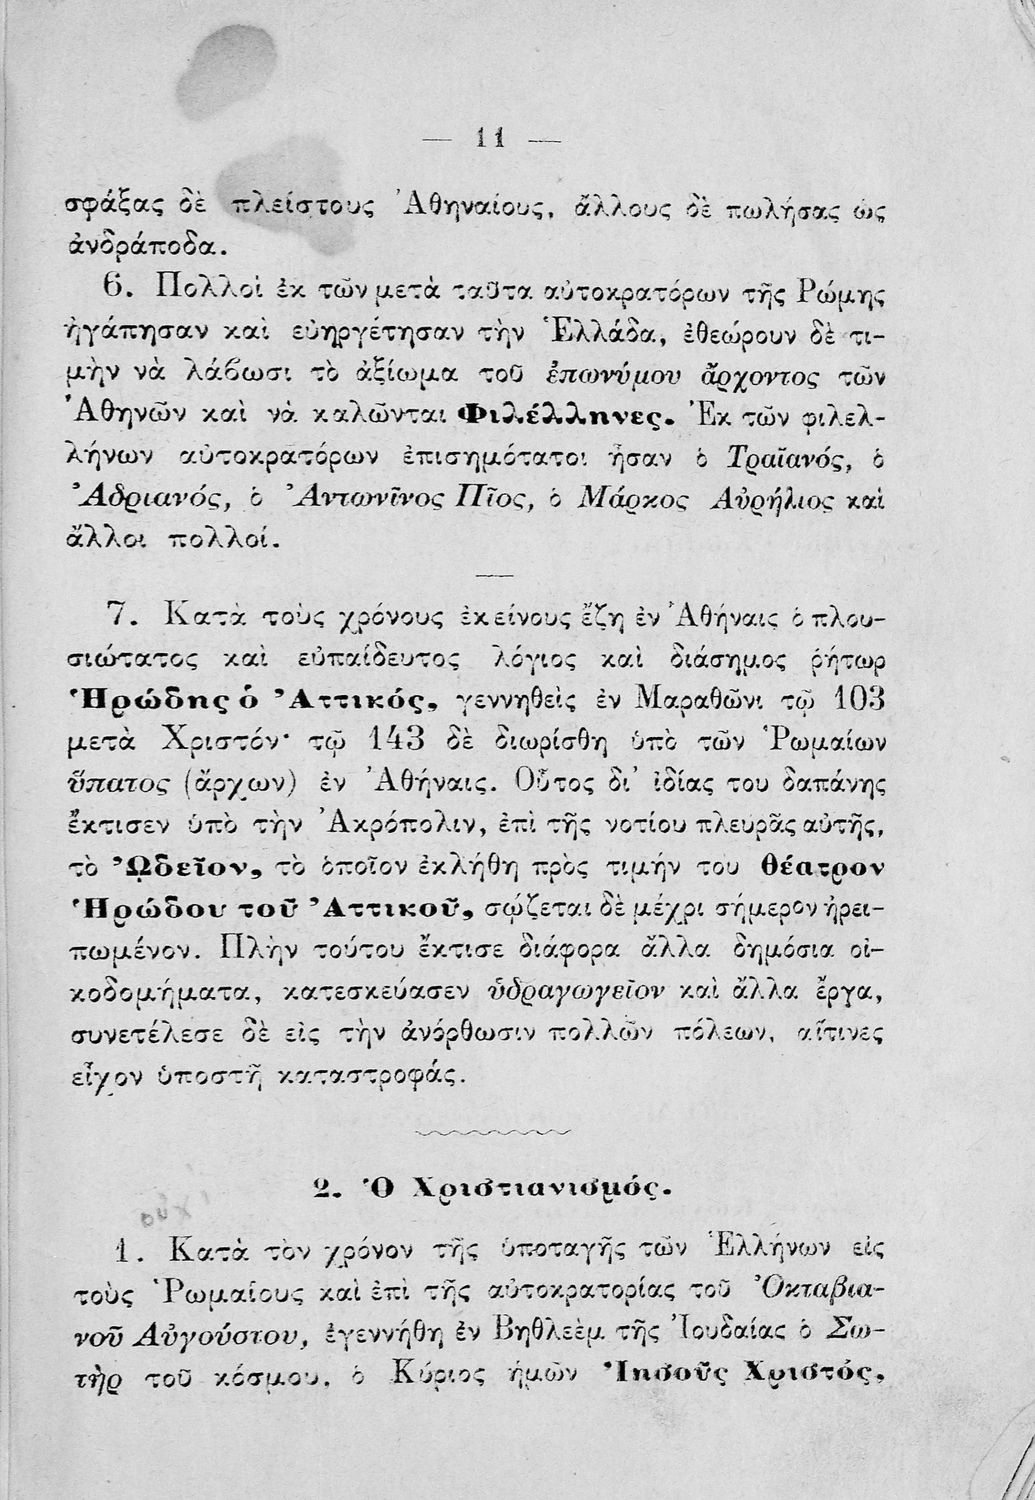 — 11 —
σφάξας δὲ πλείστους Ἀθηναίους, ἄλλους δὲ πωλήσας ὡς
ἀνδράποδα.
6. Πολλοὶ ἐκ τῶν μετὰ ταῦτα αὐτοκρατόρων τῆς Ῥώμης
ἠγάπησαν καὶ εὐηργέτησαν τὴν Ἑλλάδα, ἐθεώρουν δὲ τι-
μὴν νὰ λάβωσι τὸ ἀξίωμα τοῦ ἐπωνύμου ἄρχοντος τῶν
Ἀθηνῶν καὶ νὰ καλῶνται Φιλέλληνες. Ἐκ τῶν φιλελ-
λήνων αὐτοκρατόρων ἐπισημότατοι ἦσαν ὁ Τραϊανός, ὁ
Ἀδριανός, ὁ Ἀντωνῖνος Πῖος, ὁ Μάρκος Αὐρήλιος καὶ
ἄλλοι πολλοί.
7. Κατὰ τοὺς χρόνους ἐκείνους ἔζη ἐν Ἀθήναις ὁ πλου-
σιώτατος καὶ εὐπαίδευτος λόγιος καὶ διάσημος ῥήτωρ
Ἡρώδης ὁ Ἀττικός, γεννηθεὶς ἐν Μαραθῶνι τῷ 103
μετὰ Χριστόν· τῷ 143 δὲ διωρίσθη ὑπὸ τῶν Ῥωμαίων
ὕπατος (ἄρχων) ἐν Ἀθήναις. Οὗτος δι' ἰδίας του δαπάνης
ἔκτισεν ὑπὸ τὴν Ἀκρόπολιν, ἐπὶ τῆς νοτίου πλευρᾶς αὐτῆς,
τὸ ᾨδεῖον, τὸ ὁποῖον ἐκλήθη πρὸς τιμήν του θέατρον
Ἡρώδου τοῦ Ἀττικοῦ, σῴζεται δὲ μέχρι σήμερον ἠρει-
πωμένον. Πλὴν τούτου ἔκτισε διάφορα ἄλλα δημόσια οἰ-
κοδομήματα, κατεσκεύασεν ὑδραγωγεῖον καὶ ἄλλα ἔργα,
συνετέλεσε δὲ εἰς τὴν ἀνόρθωσιν πολλῶν πόλεων, αἵτινες
εἶχον ὑποστῆ καταστροφάς.
2. Ὁ Χριστιανισμός.
οὐχὶ
1. Κατὰ τὸν χρόνον τῆς ὑποταγῆς τῶν Ἑλλήνων εἰς
τοὺς Ῥωμαίους καὶ ἐπὶ τῆς αὐτοκρατορίας τοῦ Ὀκταβια-
νοῦ Αὐγούστου, ἐγεννήθη ἐν Βηθλεὲμ τῆς Ἰουδαίας ὁ Σω-
τὴρ τοῦ κόσμου, ὁ Κύριος ἡμῶν Ἰησοῦς Χριστός,